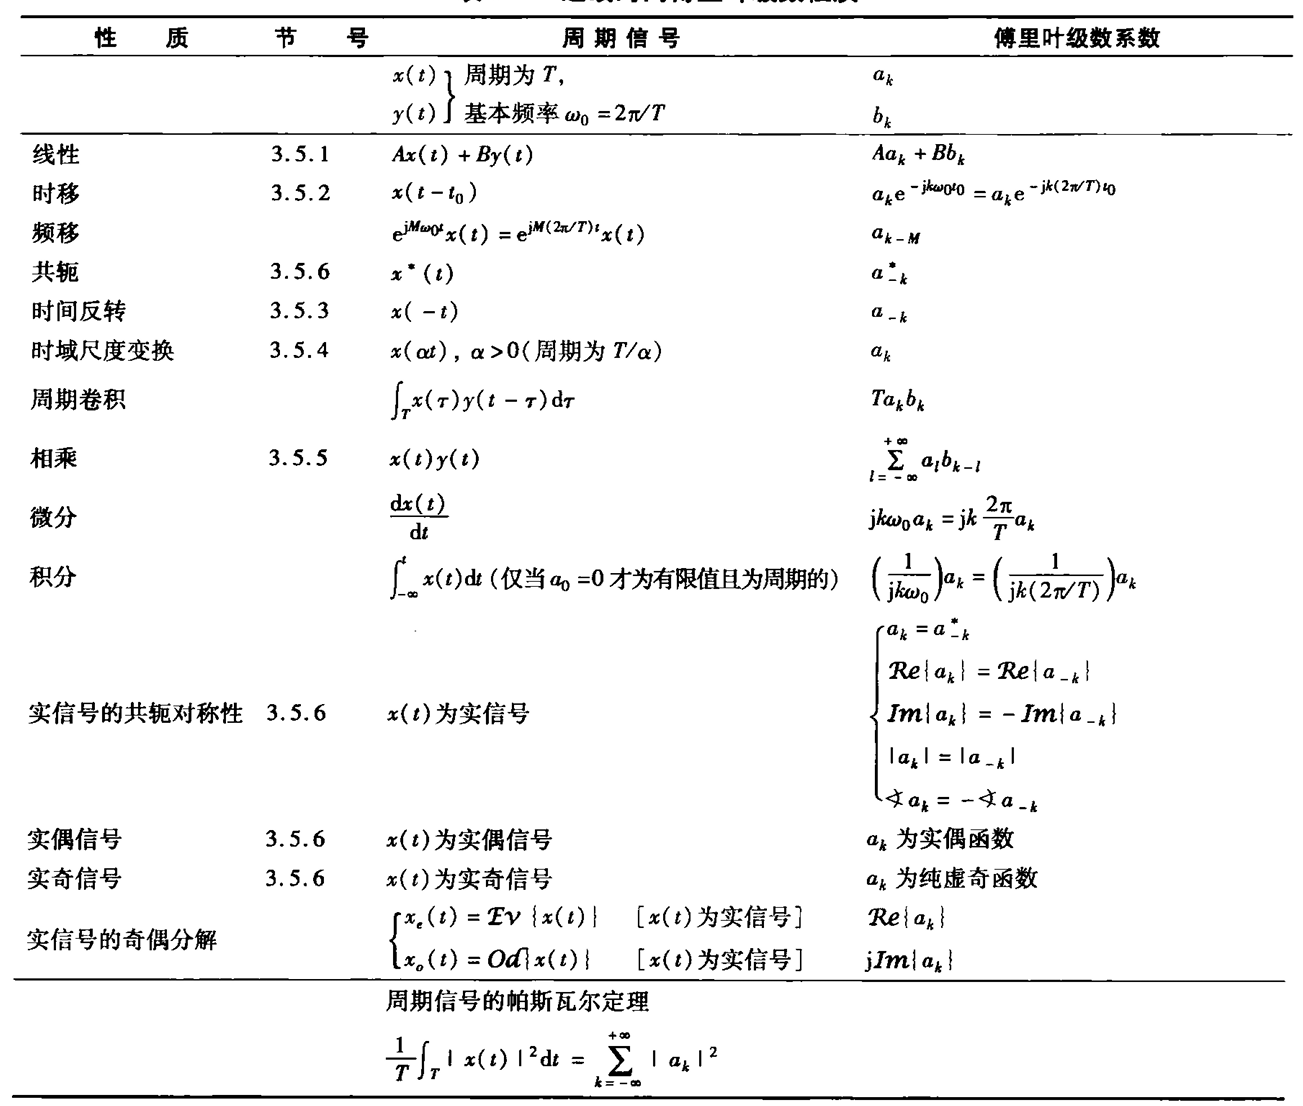 性 质 节 号 周 期 信 号 傅里叶级数系数
x(t) } 周期为 T, a_k
y(t) } 基本频率 ω₀ = 2π/T b_k
线性 3.5.1 Ax(t) + By(t) Aa_k + Bb_k
时移 3.5.2 x(t - t₀) a_k e^{-jkω₀t₀} = a_k e^{-jk(2π/T)t₀}
频移 e^{jMω₀t} x(t) = e^{jM(2π/T)t} x(t) a_{k-M}
共轭 3.5.6 x*(t) a*_{-k}
时间反转 3.5.3 x(-t) a_{-k}
时域尺度变换 3.5.4 x(αt), α>0(周期为 T/α) a_k
周期卷积 ∫_T x(τ)y(t - τ)dτ Ta_k b_k
相乘 3.5.5 x(t)y(t) ∑_{l=-∞}^{+∞} a_l b_{k-l}
微分 dx(t)/dt jkω₀a_k = jk (2π/T) a_k
积分 ∫_{-∞}^{t} x(t)dt (仅当 a₀ = 0 才为有限值且为周期的) (1/(jkω₀))a_k = (1/(jk(2π/T)))a_k
a_k = a*_{-k}
Re{a_k} = Re{a_{-k}}
实信号的共轭对称性 3.5.6 x(t)为实信号 Im{a_k} = -Im{a_{-k}}
|a_k| = |a_{-k}|
∢a_k = -∢a_{-k}
实偶信号 3.5.6 x(t)为实偶信号 a_k 为实偶函数
实奇信号 3.5.6 x(t)为实奇信号 a_k 为纯虚奇函数
实信号的奇偶分解 { x_e(t) = Ev{x(t)} [x(t)为实信号] Re{a_k}
{ x_o(t) = Od{x(t)} [x(t)为实信号] jIm{a_k}
周期信号的帕斯瓦尔定理
1/T ∫_T |x(t)|² dt = ∑_{k=-∞}^{+∞} |a_k|²